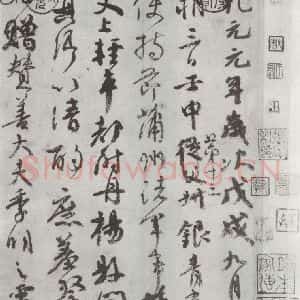 乾元元年歲次戊戌九月
朔三日壬申第十三叔銀青
使持節蒲州諸軍事
史上輕車都尉丹楊縣開
真卿以清酌庶羞祭
贈贊善大夫季明之靈
Shufawang.CN